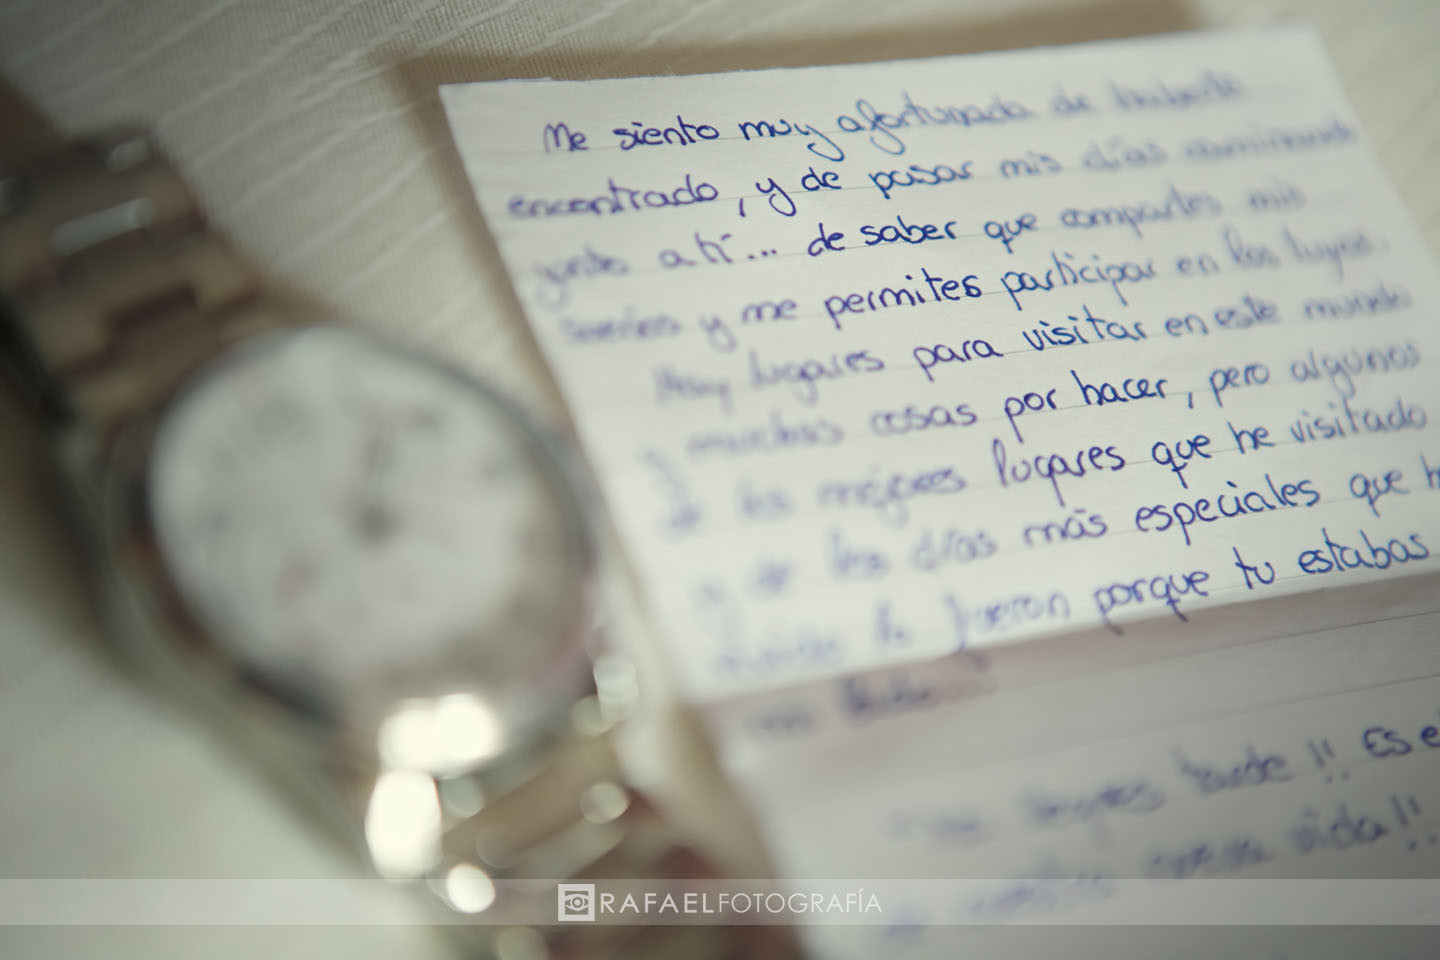 Me siento muy afortunada de haberte
encontrado, y de pasar mis días caminando
junto a tí... de saber que compartes mis
sueños y me permites participar en los tuyos.
Hay lugares para visitar en este mundo
y muchas cosas por hacer, pero algunos
de los mejores lugares que he visitado
y de los días más especiales que
fueron porque tu estabas
tarde!! Es
vida!!
RAFAELFOTOGRAFÍA